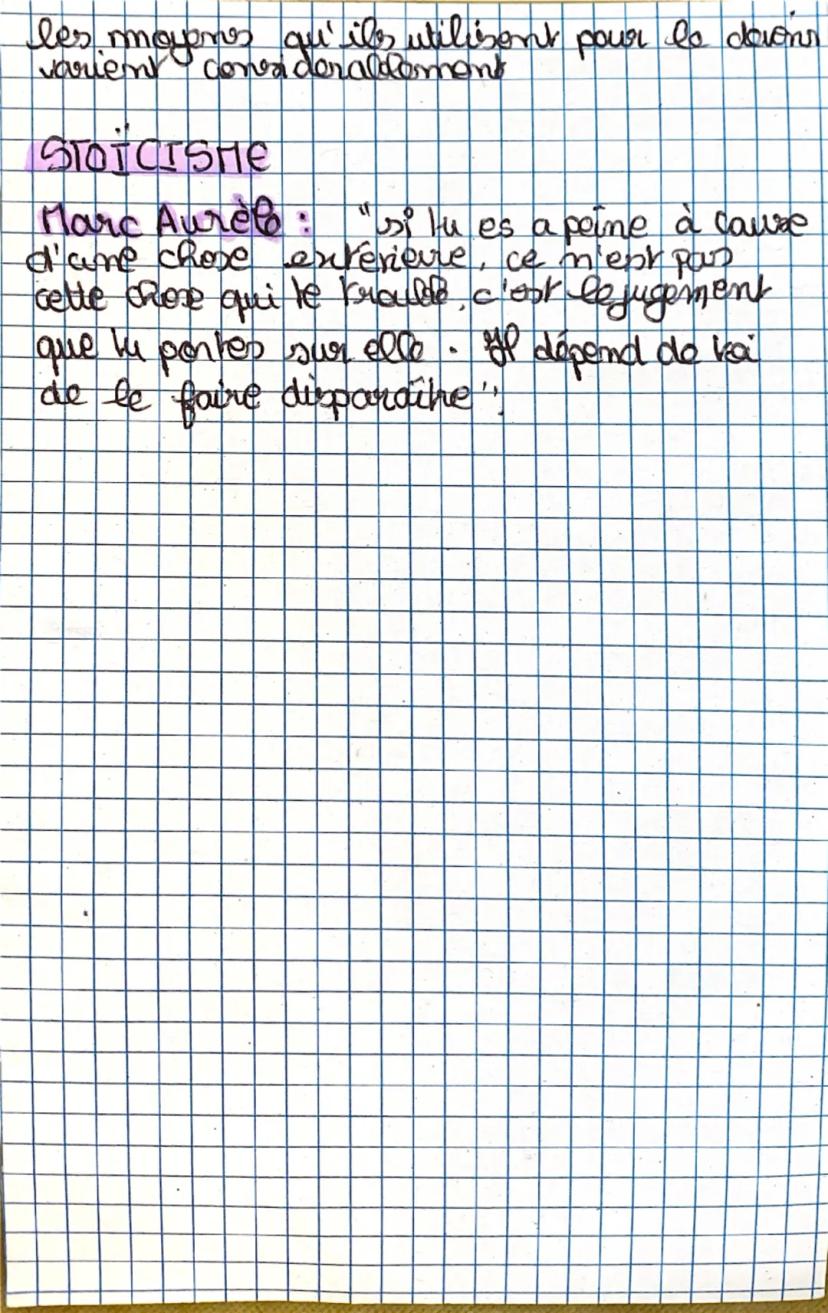 les moyens qu'ils utilisent pour le devenir
varient considerablement
STOÏCISME
Marc Aurèle : "si tu es a peine à cause
d'une chose extérieure, ce n'est pas
cette chose qui te trouble, c'est le jugement
que tu portes sur elle. Il dépend de toi
de le faire disparaître".